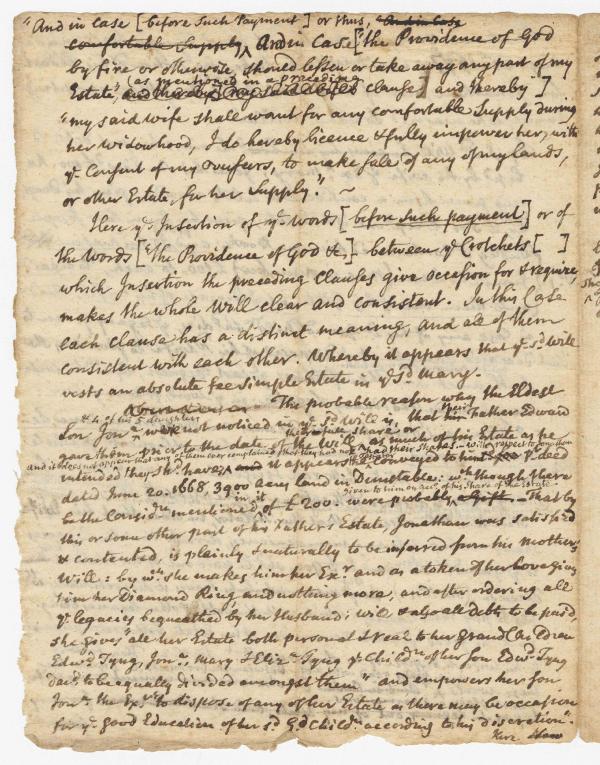 "And in case [before such Payment] or thus, "And in case
comfortable Supply, And in case ["the Providence of God
by fire or otherwise, should lessen or take away any part of my
(as mentioned in a preceding
Estate," and thereby clause] and thereby"]
"my said wife shall want for any comfortable Supply during
her widowhood, I do hereby licence & fully impower her, with
ye. Consent of my Overseers, to make sale of any of my lands,
or other Estate, for her Supply." ~
Here ye. Insertion of ye. words [before such payment] or of
the words ["the Providence of God &c] between ye Crotchets [ ]
which Insertion the preceding Clauses give occasion for & require,
makes the whole Will clear and consistent. In this Case
each clause has a distinct meaning, and all of them
consistent with each other. Whereby it appears that ye. sd. Will
vests an absolute fee simple Estate in ye. sd. Mary.
The probable reason why the Eldest
& 4 of his 5 daughters
Son Jona. were not noticed in ye. sd. Will is, that their Father Edward
their full share, or
gave them, prior to the date of the Will, as much of his Estate as he
and it does not appear that any of them ever complained that they had not had their share. With respect to Jonathan
intended they shd. have, and it appears he conveyed to him by deed
dated June 20. 1668, 3900 acres land in Dunstable: wch. though there
in it given to him on acct. of his share of the Estate.
be the Considn. mentioned of £200. were probably a Gift. That by
this or some other part of his Father's Estate, Jonathan was satisfied
& contented, is plainly & naturally to be inferred from his mother's
Will: by wch. she makes him her Exr. and as a token of her love gives
him her Diamond Ring, and nothing more, and after ordering all
ye legacies bequeathed by her Husband's will & also all Debts to be paid,
she gives "all her Estate both personal & real to her Grand Children
Edwd. Tyng, Jona., Mary & Eliza. Tyng ye Childn. of her Son Edwd. Tyng
decd. to be equally divided amongst them" and empowers her son
Jona. the Exr. "to dispose of any of her Estate as there may be occasion
for ye. good Education of her sd. Gd. Childn. according to his discretion".